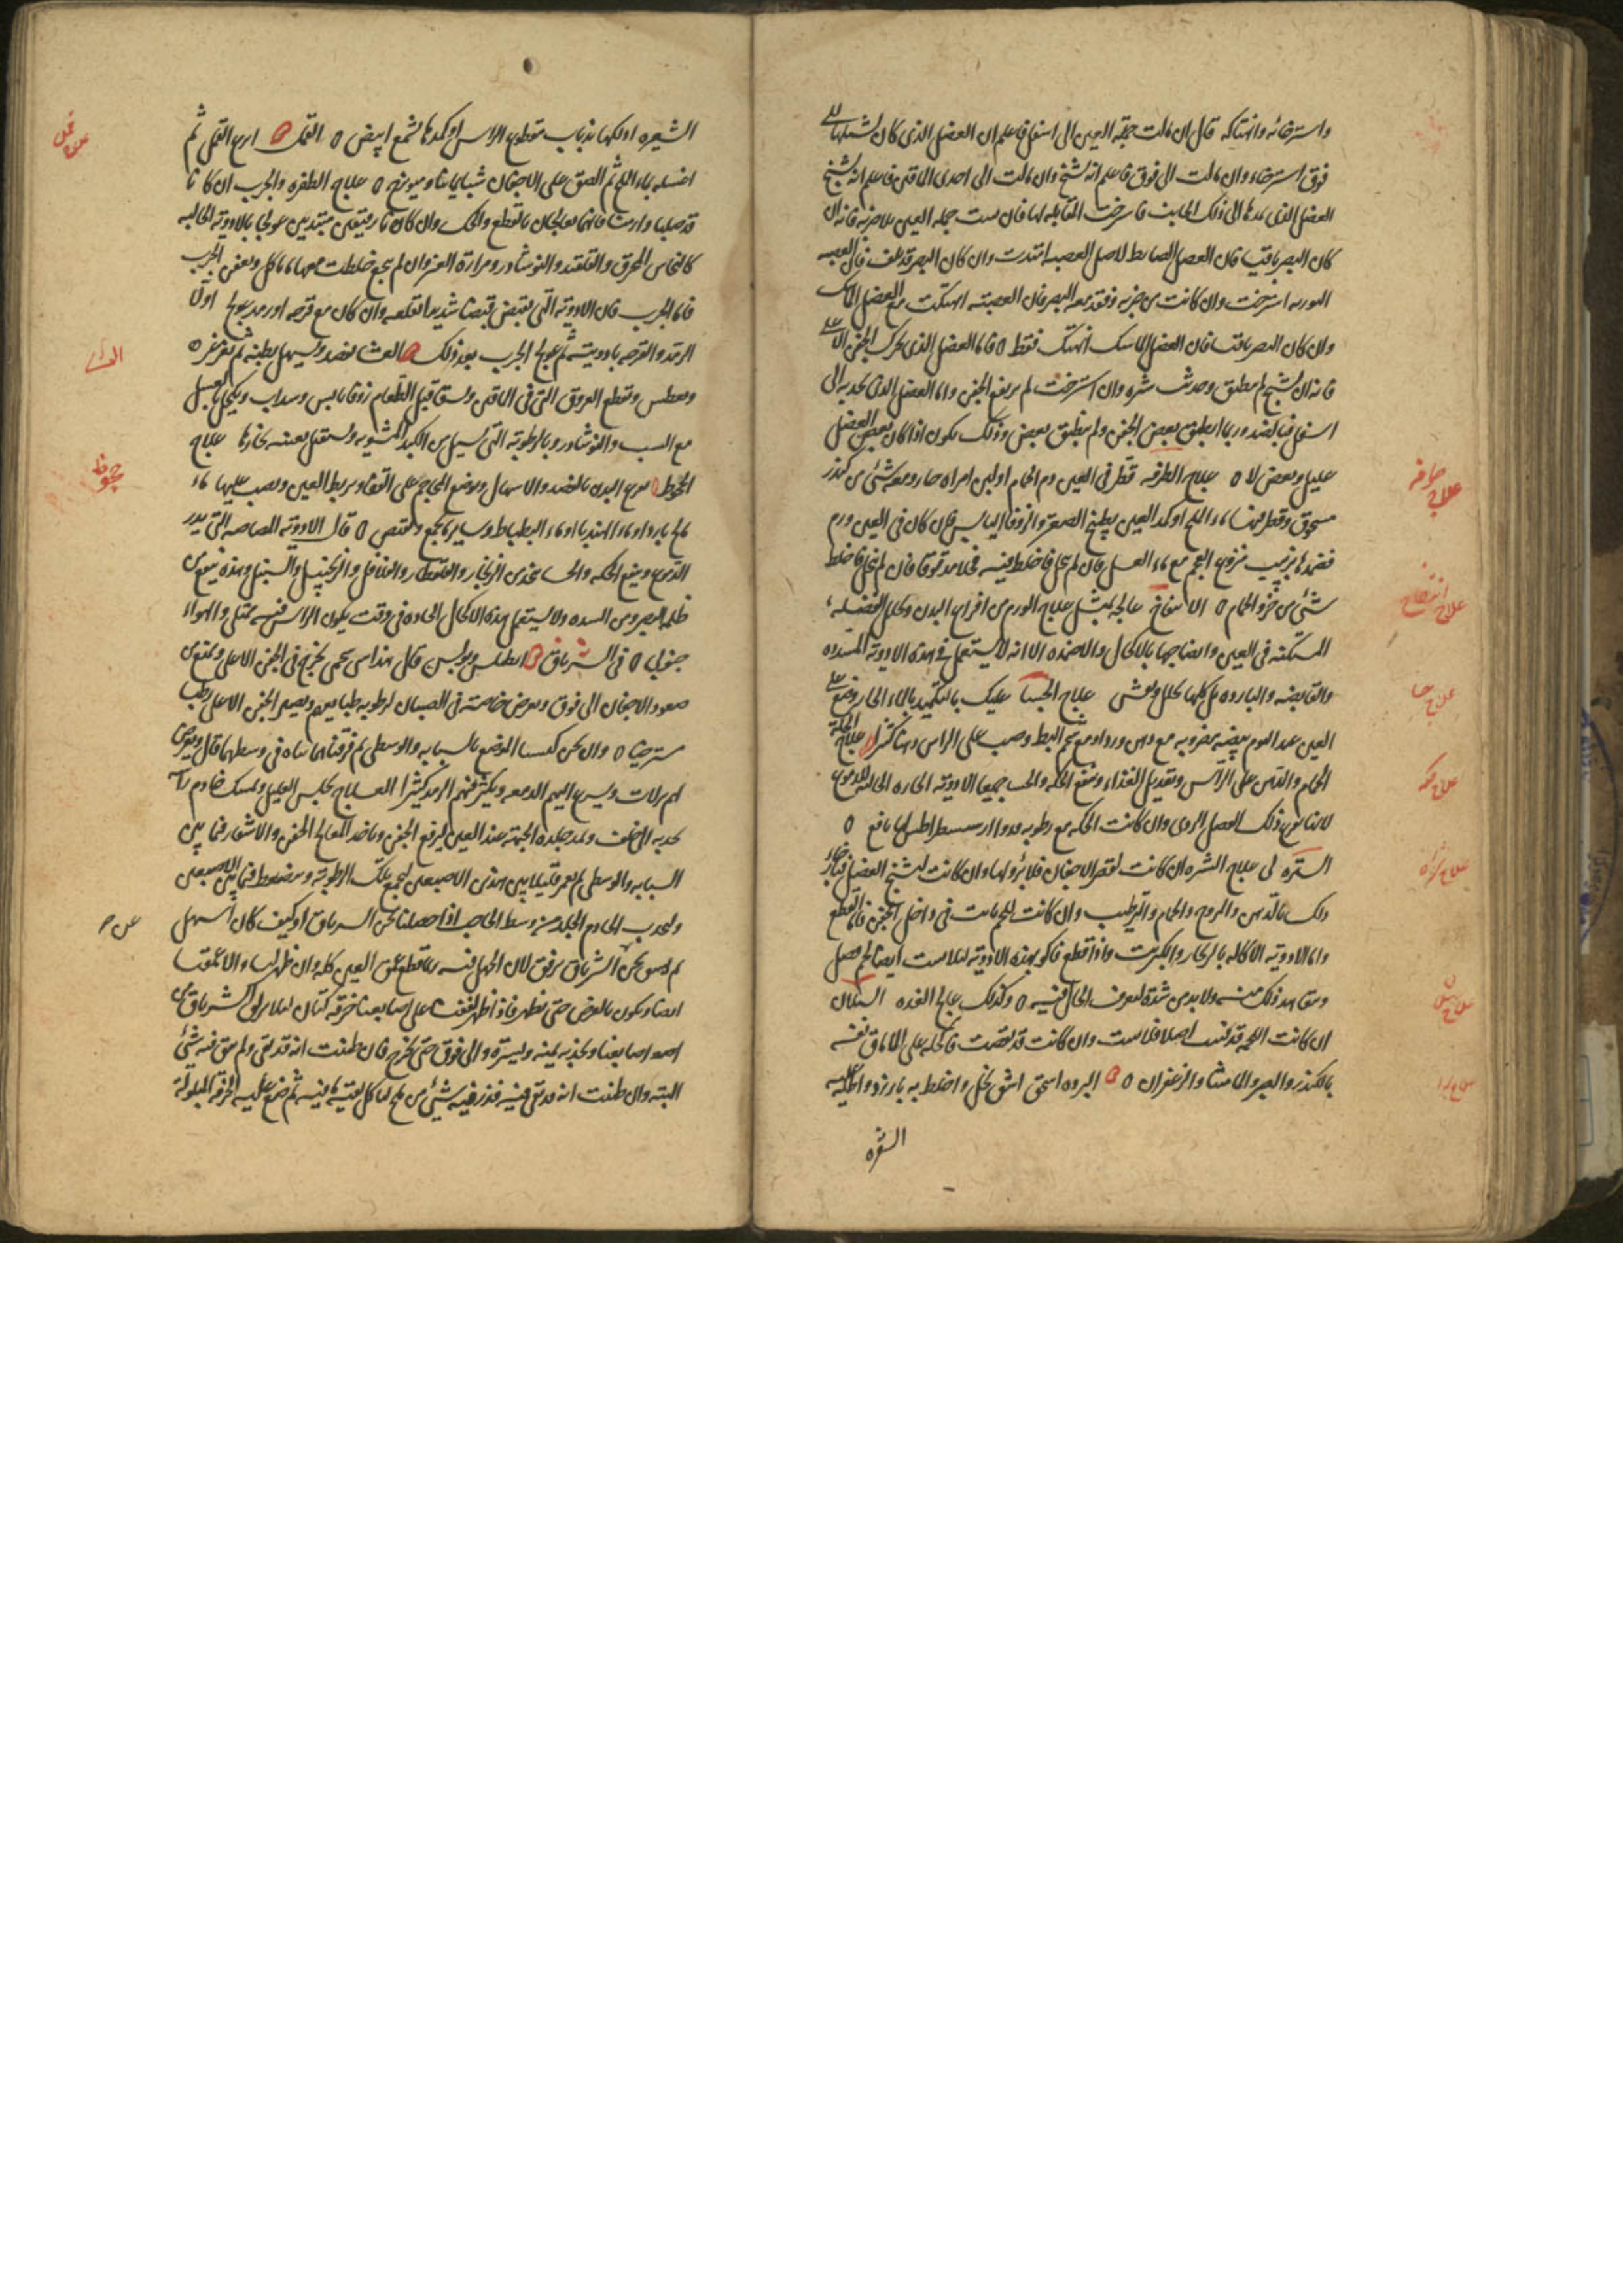 واسترخائه وانهتاكه قال ان مالت جملة العين الى اسفل فاعلم ان العضل الذى كان يشيلها الى
فوق استرخاء وان مالت الى فوق فاعلم انه تشنج وان مالت الى احدى الماقين فاعلم انه تشنج
العضل الذى يمدها الى ذلك الجانب فاسترخت المقابلة لها فان نتت جملة العين بلا ضربة فانه ان
كان البصر باقيا فان العضل الضابط لاصل العصبة امتدت وان كان البصر قد تلف فان العصبة
النورية استرخت وان كانت من ضربة وفقد معه البصر فان العصبة انهتكت مع العضل الماسك
وان كان البصر باقيا فان العضل الماسك انهتك فقط ٥ فاما العضل الذى يحرك الجفن الاعلى
فانه ان تشنج لم ينطبق وحدث شتره وان استرخت لم يرتفع الجفن واما العضل الذى يجذبه الى
اسفل فبالضد وربما انطبق بعض الجفن ولم ينطبق بعض وذلك يكون اذا كان بعض العضل
عليل وبعض لا ٥ علاج الطرفه قطر فى العين دم الحمام او لبن امراه حار ومعه شئ من كندر
مسحوق وقطر فيها ماء الملح او كمد العين بطبيخ الصعتر والزوفا اليابس فان كان فى العين ورم
فضمدها بزبيب منزوع العجم مع ماء العسل فان لم ينحل فاخلط فيه فجلا مدقوقا فان لم ينحل فاخلط
شئ من خرو الحمام ٥ الانتفاخ عالجه بمثل علاج الورم من افراغ البدن وتحليل الفضلة
المستكنة فى العين وانضاجها بالاكحال والاضمده الا انه لا يستعمل فى هذه الادوية المسدده
والقابضه والبارده بل كلها تحلل وتفشى علاج الجسا عليك بالتكميد بالماء الحار وضع على
العين عند النوم بيضه مضروبه مع دهن ورد او مع شحم البط وصب على الراس دهنا كثيرا علاج الحكه
الحمام والدهن على الراس وتعديل الغذاء وينفع الحكه والجسا جميعا الادوية الحارة الجالبه للدموع
لانها تفرغ ذلك الفضل الردى وان كانت الحكه مع رطوبه نافع ٥
الشتره لى علاج الشتره ان كانت لقصر الاجفان فلا برؤ لها وان كانت لتشنج العضل فبارخاء
ذلك بالدهن والمروخ والحمام والترطيب وان كانت للحم نابت فى داخل الجفن فالقطع
واما الادوية الاكالة بالزنجار والكبريت واذا قطع فاكو بهذه الادوية لئلا ينبت ايضا لحم فضل
ويتعاهد ذلك منه ولا بد من شدة لتعرف الحال فيه ٥ وكذلك عالج الغده السيلان
ان كانت اللحمه قد فنيت اصلا فلا تنبت وان كانت قد نقصت فاكحله على الماق نفسه
بالكندر والصبر والماميثا والزعفران ٥ البرده اسحق اشق بخل واخلط به بارزد واطليه
الشعره
علاج طرفه
علاج انتفاخ
علاج جسا
علاج حكه
علاج شتره
علاج سيلان
علاج برده
الشعيره او لكها بذباب مقطوع الراس او كمدها بشمع ابيض ٥ القمل انزع القمل ثم
اغسله بماء الملح ثم الصق على الاجفان شبا يمانيا وميويزج ٥ علاج الظفره والجرب ان كانا
قد صلبا وازمنا فانهما يعالجان بالقطع والحك وان كانا رقيقين مبتديين عولجا بالادوية الجالية
كالنحاس المحرق والقلقند والنوشادر ومرارة العنز وان لم ينجع خلطت معها ما ياكل ويعفن الجرب
فاما الجرب فان الادوية التى تقبض قبضا شديدا تقلعه وان كان مع قرحه او رمد عولج اولا
الرمد والقرحه بادويته ثم عولج الجرب بعد ذلك العشا يفصد ويسهل بطنه ثم يغرغر
ويعطس وتقطع العروق التى فى الماقين ويسقى قبل الطعام زوفا يابس وسداب ويكحل بالعسل
مع الشب والنوشادر وبالرطوبة التى تسيل من الكبد المشوية ويستقبل بعينه بخارها علاج
الجحوظ يفرغ البدن بالفصد والاسهال وبوضع المحاجم على القفا ويربط العين ويصب عليها ماء
مالح بارد او ماء الهندبا او ماء البطباط وساير ما يجمع ويقبض ٥ قال الادوية المصاصة التى تدر
الدموع وينفع الحكه والجسا يتخذ من الزنجار والقلقطار والفلفل والزنجبيل والسنبل وهذه ينفع من
ظلمه البصر ومن السده ولا يستعمل هذه الاكحال الحاده فى وقت يكون الراس فيه ممتلى والهواء
جنوبى ٥ فى الشرناق انطلس وبولس قال هذا شئ شحمى يخرج فى الجفن الاعلى ويمنع من
صعود الاجفان الى فوق ويعرض خاصة فى الصبيان لرطوبه طبايعهم ويصير الجفن الاعلى رطبا
مسترخيا ٥ وان نحن كبسنا الموضع بالسبابه والوسطى ثم فرقناهما نتا فى وسطهما قال ويعرض
لهم نزلات ويسرع اليهم الدمعه ويكثر فيهم الرمد كثيرا العلاج يجلس العليل ويمسك خادم راسه
يجذبه الى خلف ويمد جلدة الجبهة عند العين ليرفع الجفن وياخذ المعالج الجفن والاشفار فيما بين
السبابه والوسطى ثم يعصر قليلا بين هذين الاصبعين ليجمع تلك الرطوبة ويضغط فيما بين الاصبعين
ويجذب الخادم الجلد من وسط الحاجب فاذا حصلنا نحن الشرناق او كيف كان اسهل
ثم يشق نحن الشرناق برفق لان الجهل فيه ربما قطع عمق العين كله وان ظهر لنا والا عمقنا
ايضا ويكون بالعرض حتى يظهر فاذا ظهر لففنا على اصابعنا خرقة كتان لئلا يزلق الشرناق من
اصابعنا ويجذبه يمنه ويسره والى فوق حتى يخرج فان ظننت انه قد بقى ولم يبق فيه شئ
البته وان ظننت انه قد بقى فيه فذر فيه شئ من ملح لياكل بقيته ما فيه ثم ضع عليه الخرقة المبلولة
علاج قمل
العشا
جحوظ